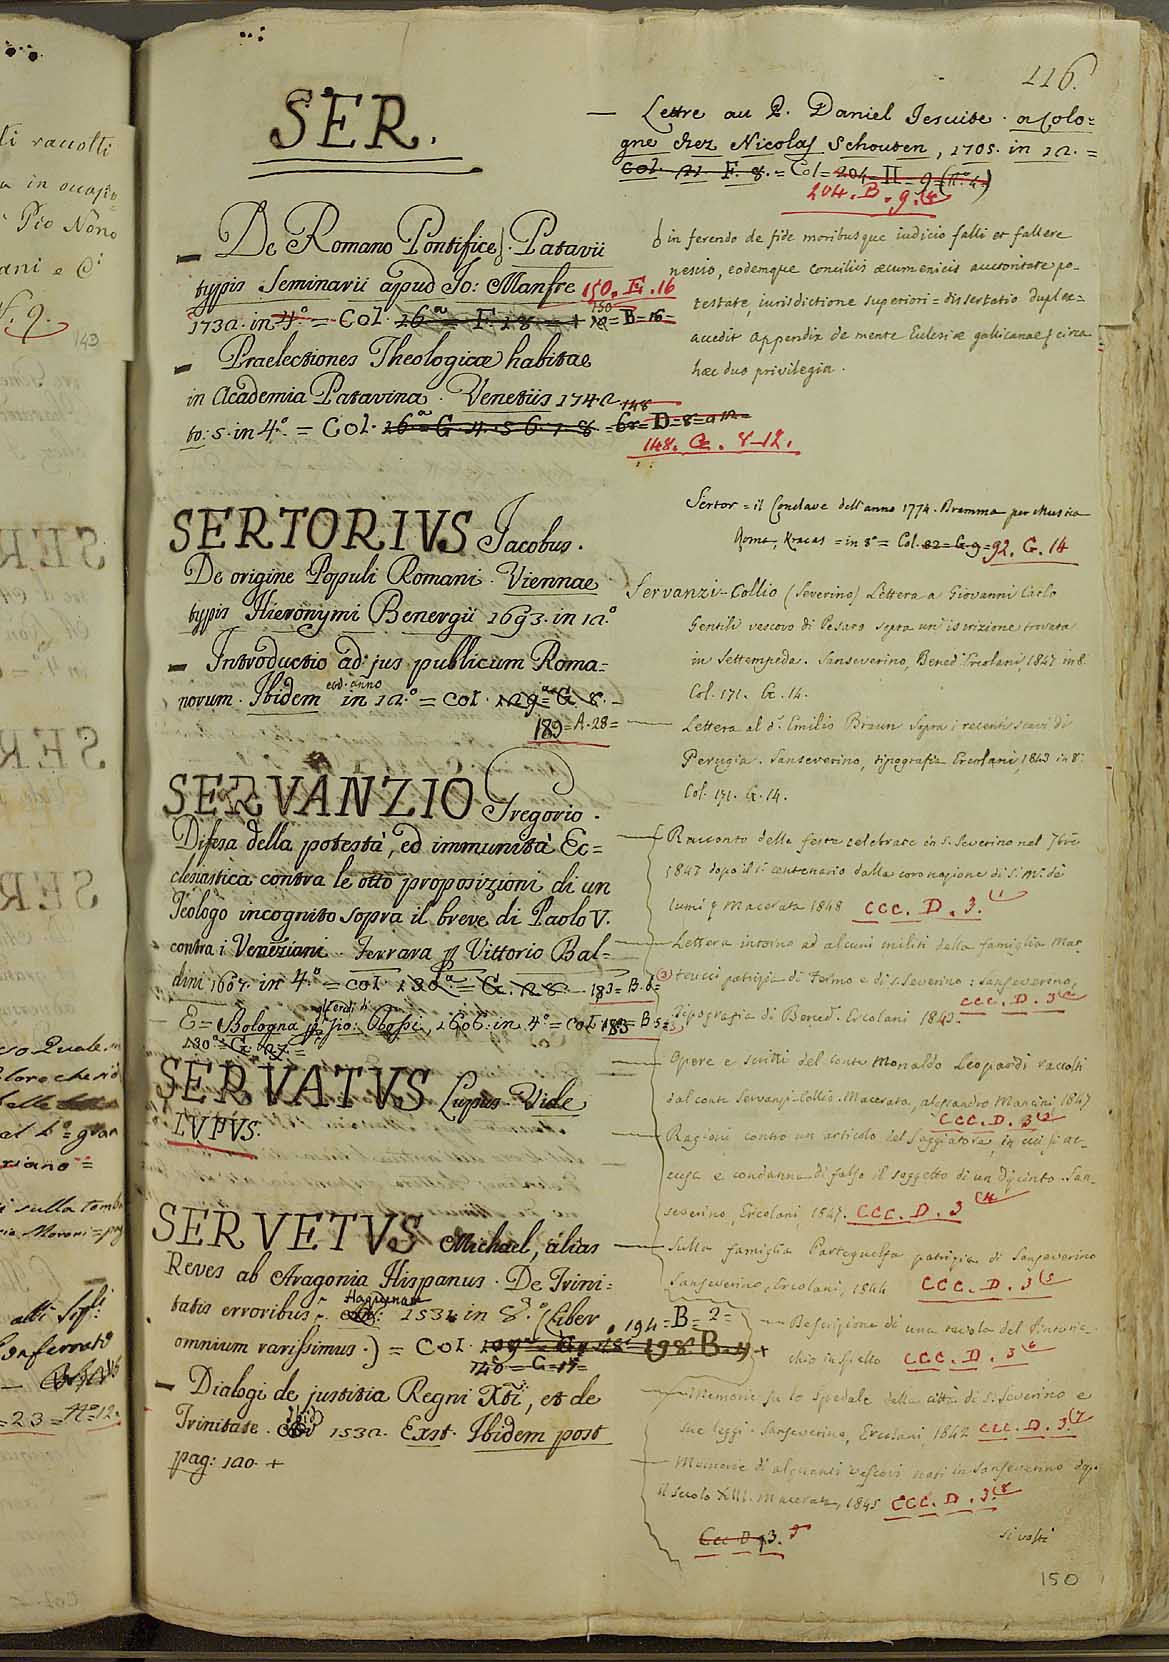 ti raccolti
a in occasio
Pio Nono
ani e C.
143
SER
SER
SER
so Quale
loro che si
elle
ariano =
i sulla tomb
ria Moroni
alli
= 23 = N.° 12.
116.
SER.
— De Romano Pontifice. Patavii
typis Seminarii apud Jo: Manfre 150. E. 16
1732. in 4.° = Col. 16.ª = F. 18 = + 150 = B = 16 =
— Praelectiones Theologicæ habitae
in Academia Patavina. Venetiis 1742
to: 5. in 4.° = Col. 16.ª G. 4. 5. 6. 7. 8. = 148 = D = 8 = a 12 =
148. G. 8-12.
SERTORIVS Jacobus.
De origine Populi Romani. Viennae
typis Hieronymi Benergii 1693. in 12.°
— Introductio ad jus publicum Roma=
novum. Ibidem eod. anno in 12.° = Col. 129.ª = G. 8. —
189 = A. 28 =
SERVANZIO Gregorio.
Difesa della potestà, ed immunità Ec=
clesiastica contra le otto proposizioni di un
Teologo incognito sopra il breve di Paolo V.
contra i Veneziani. Ferrara p Vittorio Bal=
dini 1607. in 4.° = Col. 130.ª = G. 28. — 183 = B. 6 =
E = Bologna p gl'eredi di Gio: Rossi, 1606. in 4.° = Col. 183 = B 5 =
130° = G. 27. =
SERVATVS Lupus. Vide
LVPVS.
SERVETVS Michael, alias
Reves ab Aragonia Hispanus. De Trini=
tatis erroribus. Haguenau 1531 in 8.° (Liber
omnium rarissimus.) = Col. 198 B. 4 + 194 = B = 2 =
148 = G = 17 =
— Dialogi de justitia Regni Xti, et de
Trinitate. ibid 1532. Exst. Ibidem post
pag: 120. +
— Lettre au P. Daniel Jesuite. a Colo=
gne chez Nicolas Schouten, 1705. in 12. =
Col. 21. F. 8. = Col = 204 = H = 9 = (n° 4)
204. B. 9. (4
in ferendo de fide moribusque iudicio falli et fallere
nescio, eodemque conciliis œcumenicis auctoritate po-
testate, iurisdictione superiori = dissertatio duplex =
accedit appendix de mente Ecclesiæ gallicanae circa
hæc duo privilegia.
Sertor = il Conclave dell'anno 1774. Dramma per Musica
Roma, Kracas = in 8° = Col. 82 = G. 9 = 92. G. 14
Servanzi-Collio (Severino) Lettera a Giovanni Carlo
Gentili vescovo di Pesaro sopra un'iscrizione trovata
in Settempeda. Sanseverino, Bened. Ercolani, 1847 in 8.
Col. 171. G. 14.
— Lettera al d. Emilio Braun sopra i recenti scavi di
Perugia. Sanseverino, tipografia Ercolani, 1843 in 8.
Col. 171. G. 14.
— Racconto delle feste celebrate in S. Severino nel 7bre
1847 dopo il centenario dalla coronazione di S. M. dei
lumi p Macerata 1848 CCC. D. 3. (1
— Lettera intorno ad alcuni militi della famiglia Mar
teucci patrizia di Fermo e di S. Severino: Sanseverino,
CCC. D. 3 (2
tipografia di Bened. Ercolani 1843.
— Opere e scritti del conte Monaldo Leopardi raccolti
dal conte Servanzi-Collio. Macerata, alessandro Mancini 1847
CCC. D. 3 (3
— Ragioni contro un articolo del Saggiatore, in cui si ac-
cusa e condanna di falso il soggetto di un dipinto. San-
severino, Ercolani, 1847. CCC. D. 3 (4
— Sulla famiglia Parteguelfa patrizia di Sanseverino
Sanseverino, Ercolani, 1844 CCC. D. 3 (5
— Descrizione di una tavola del Pinturic-
chio in Spello CCC. D. 3 (6
— Memorie su lo spedale della città di S. Severino e
sue leggi. Sanseverino, Ercolani, 1842 CCC. D. 3. (7
— Memorie di alquanti vescovi nati in Sanseverino dopo
il secolo XIII. Macerata, 1845 CCC. D. 3. (8
CCC D 3. 9
si volti
150